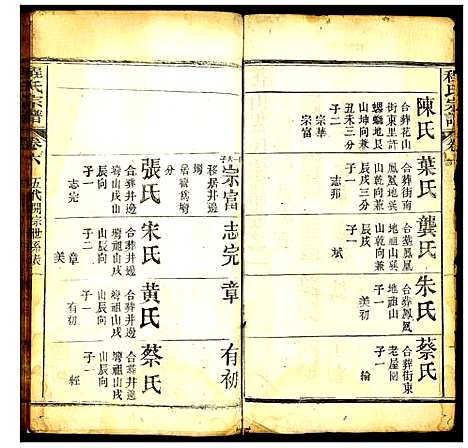 程氏宗譜
卷六
陳氏
合葬花山
街東里許
螺螄地艮
山坤向兼
丑未三分
子二
宗華
宗富
葉氏
合葬街南
鳳凰地巽
山乾向兼
辰戌三分
子一
志邦
龔氏
合葬鳳凰
地祖山巽
山乾向兼
辰戌
子一
斌
朱氏
合葬鳳凰
地祖山
子一
美初
蔡氏
合葬街東
老屋園
子一
綸
宗富
移居井邊
居舊窩塆
分
張氏
合葬井邊
塆山戌
山辰向
子一
志完
志完
宋氏
合葬井邊
塆祖山戌
山辰向
子二
章
美
章
黃氏
合葬井邊
塆祖山戌
山辰向
子一
有初
有初
蔡氏
合葬井邊
塆祖山戌
山辰向
子一
經
程氏宗譜
卷六
五代開宗世系表